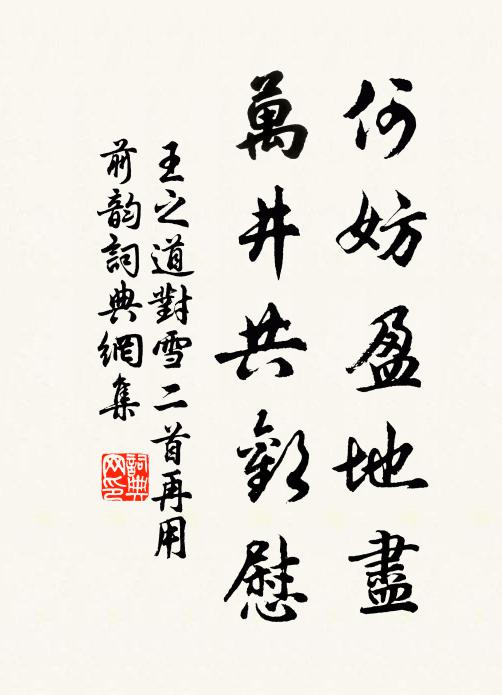 何妨盈地盡
萬井共歡慰
王之道對雪二首再用
前韵詞典網集
詞典
网印